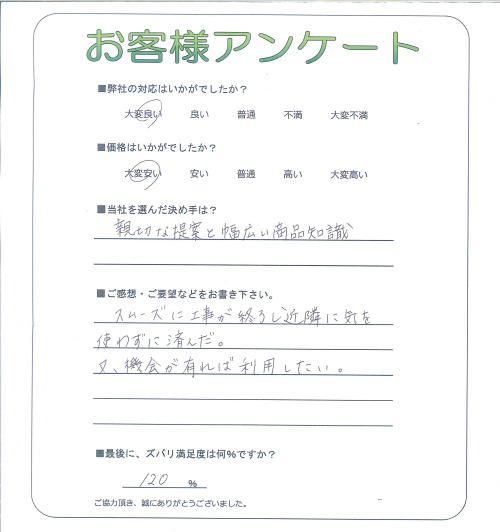 お客様アンケート
■弊社の対応はいかがでしたか？
大変良い 良い 普通 不満 大変不満
■価格はいかがでしたか？
大変安い 安い 普通 高い 大変高い
■当社を選んだ決め手は？
親切な提案と幅広い商品知識
■ご感想・ご要望などをお書き下さい。
スムーズに工事が終ろし近隣に気を
使わずに済んだ。
又、機会が有れば利用したい。
■最後に、ズバリ満足度は何％ですか？
120 ％
ご協力頂き、誠にありがとうございました。